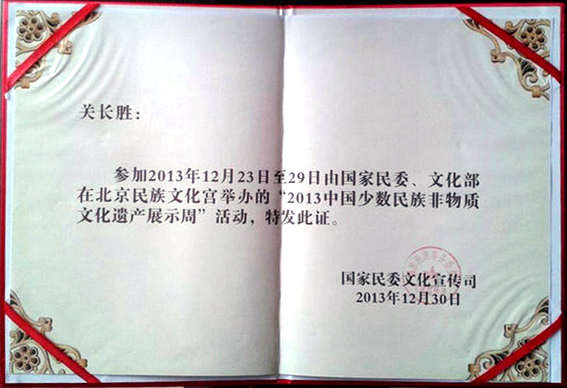 关长胜：
参加2013年12月23日至29日由国家民委、文化部
在北京民族文化宫举办的“2013中国少数民族非物质
文化遗产展示周”活动，特发此证。
国家民委文化宣传司
2013年12月30日